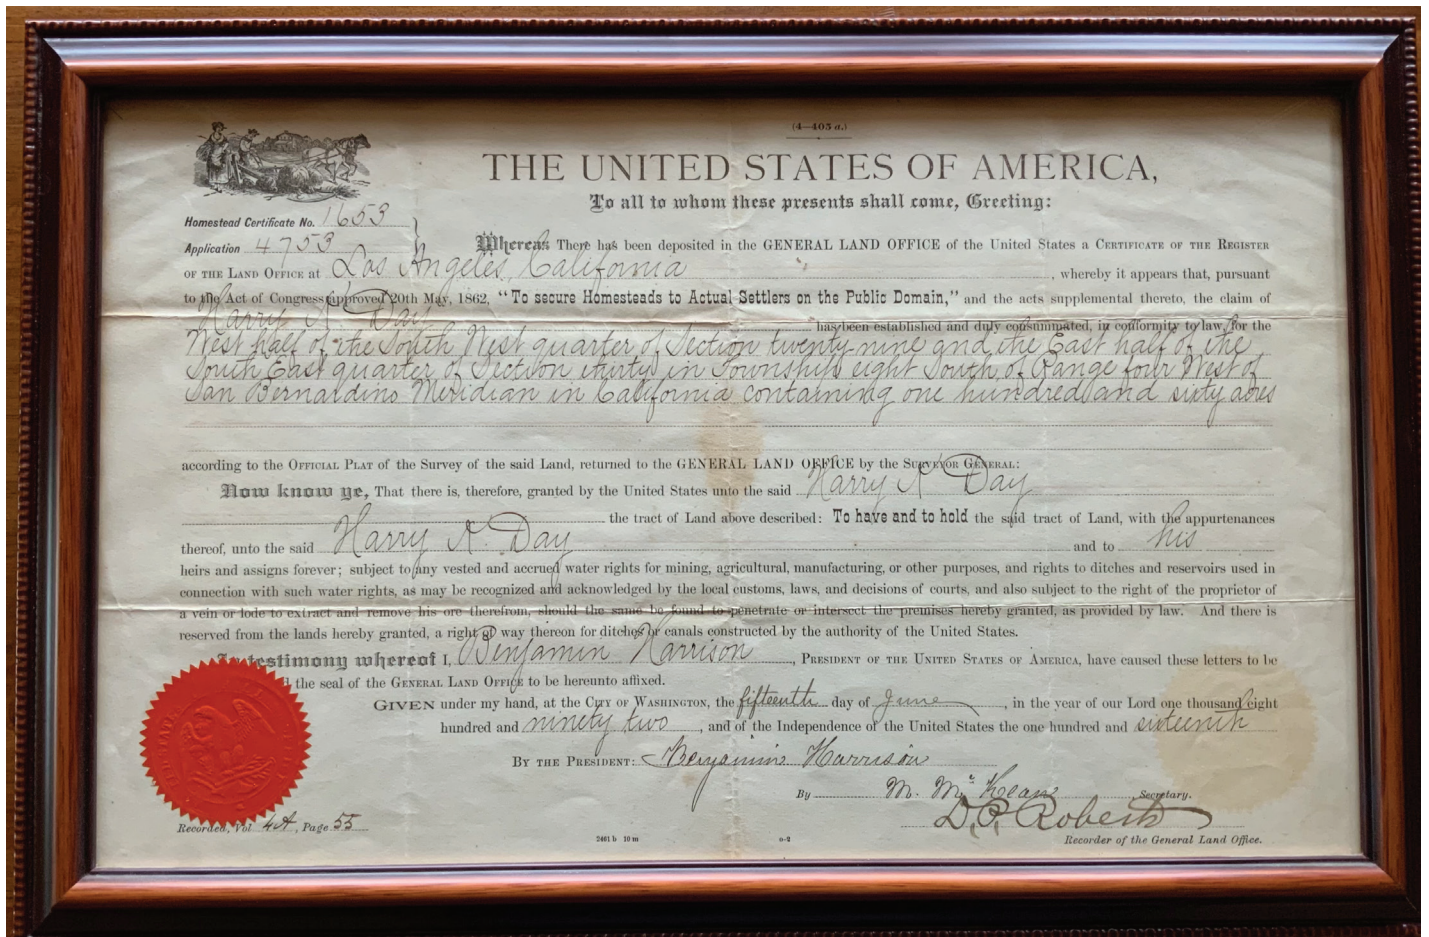 (4—405 a.)
THE UNITED STATES OF AMERICA,
To all to whom these presents shall come, Greeting:
Homestead Certificate No. 1653
Application 4753
Whereas There has been deposited in the GENERAL LAND OFFICE of the United States a CERTIFICATE OF THE REGISTER
OF THE LAND OFFICE at Los Angeles, California, whereby it appears that, pursuant
to the Act of Congress approved 20th May, 1862, "To secure Homesteads to Actual Settlers on the Public Domain," and the acts supplemental thereto, the claim of
Harry N. Day has been established and duly consummated, in conformity to law, for the
West half of the South West quarter of Section twenty nine and the East half of the
South East quarter of Section thirty in Township eight South of Range four West of
San Bernardino Meridian in California containing one hundred and sixty acres
according to the OFFICIAL PLAT of the Survey of the said Land, returned to the GENERAL LAND OFFICE by the SURVEYOR GENERAL:
Now know ye, That there is, therefore, granted by the United States unto the said Harry N Day
the tract of Land above described: To have and to hold the said tract of Land, with the appurtenances
thereof, unto the said Harry N. Day and to his
heirs and assigns forever; subject to any vested and accrued water rights for mining, agricultural, manufacturing, or other purposes, and rights to ditches and reservoirs used in
connection with such water rights, as may be recognized and acknowledged by the local customs, laws, and decisions of courts, and also subject to the right of the proprietor of
a vein or lode to extract and remove his ore therefrom, should the same be found to penetrate or intersect the premises hereby granted, as provided by law. And there is
reserved from the lands hereby granted, a right of way thereon for ditches or canals constructed by the authority of the United States.
In testimony whereof I, Benjamin Harrison, PRESIDENT OF THE UNITED STATES OF AMERICA, have caused these letters to be
the seal of the GENERAL LAND OFFICE to be hereunto affixed.
GIVEN under my hand, at the CITY OF WASHINGTON, the fifteenth day of June, in the year of our Lord one thousand eight
hundred and ninety two, and of the Independence of the United States the one hundred and sixteenth
BY THE PRESIDENT: Benjamin Harrison
By M. McKean Secretary.
Recorded, Vol 4A, Page 55
2461 b 10 m
o-2
Recorder of the General Land Office.